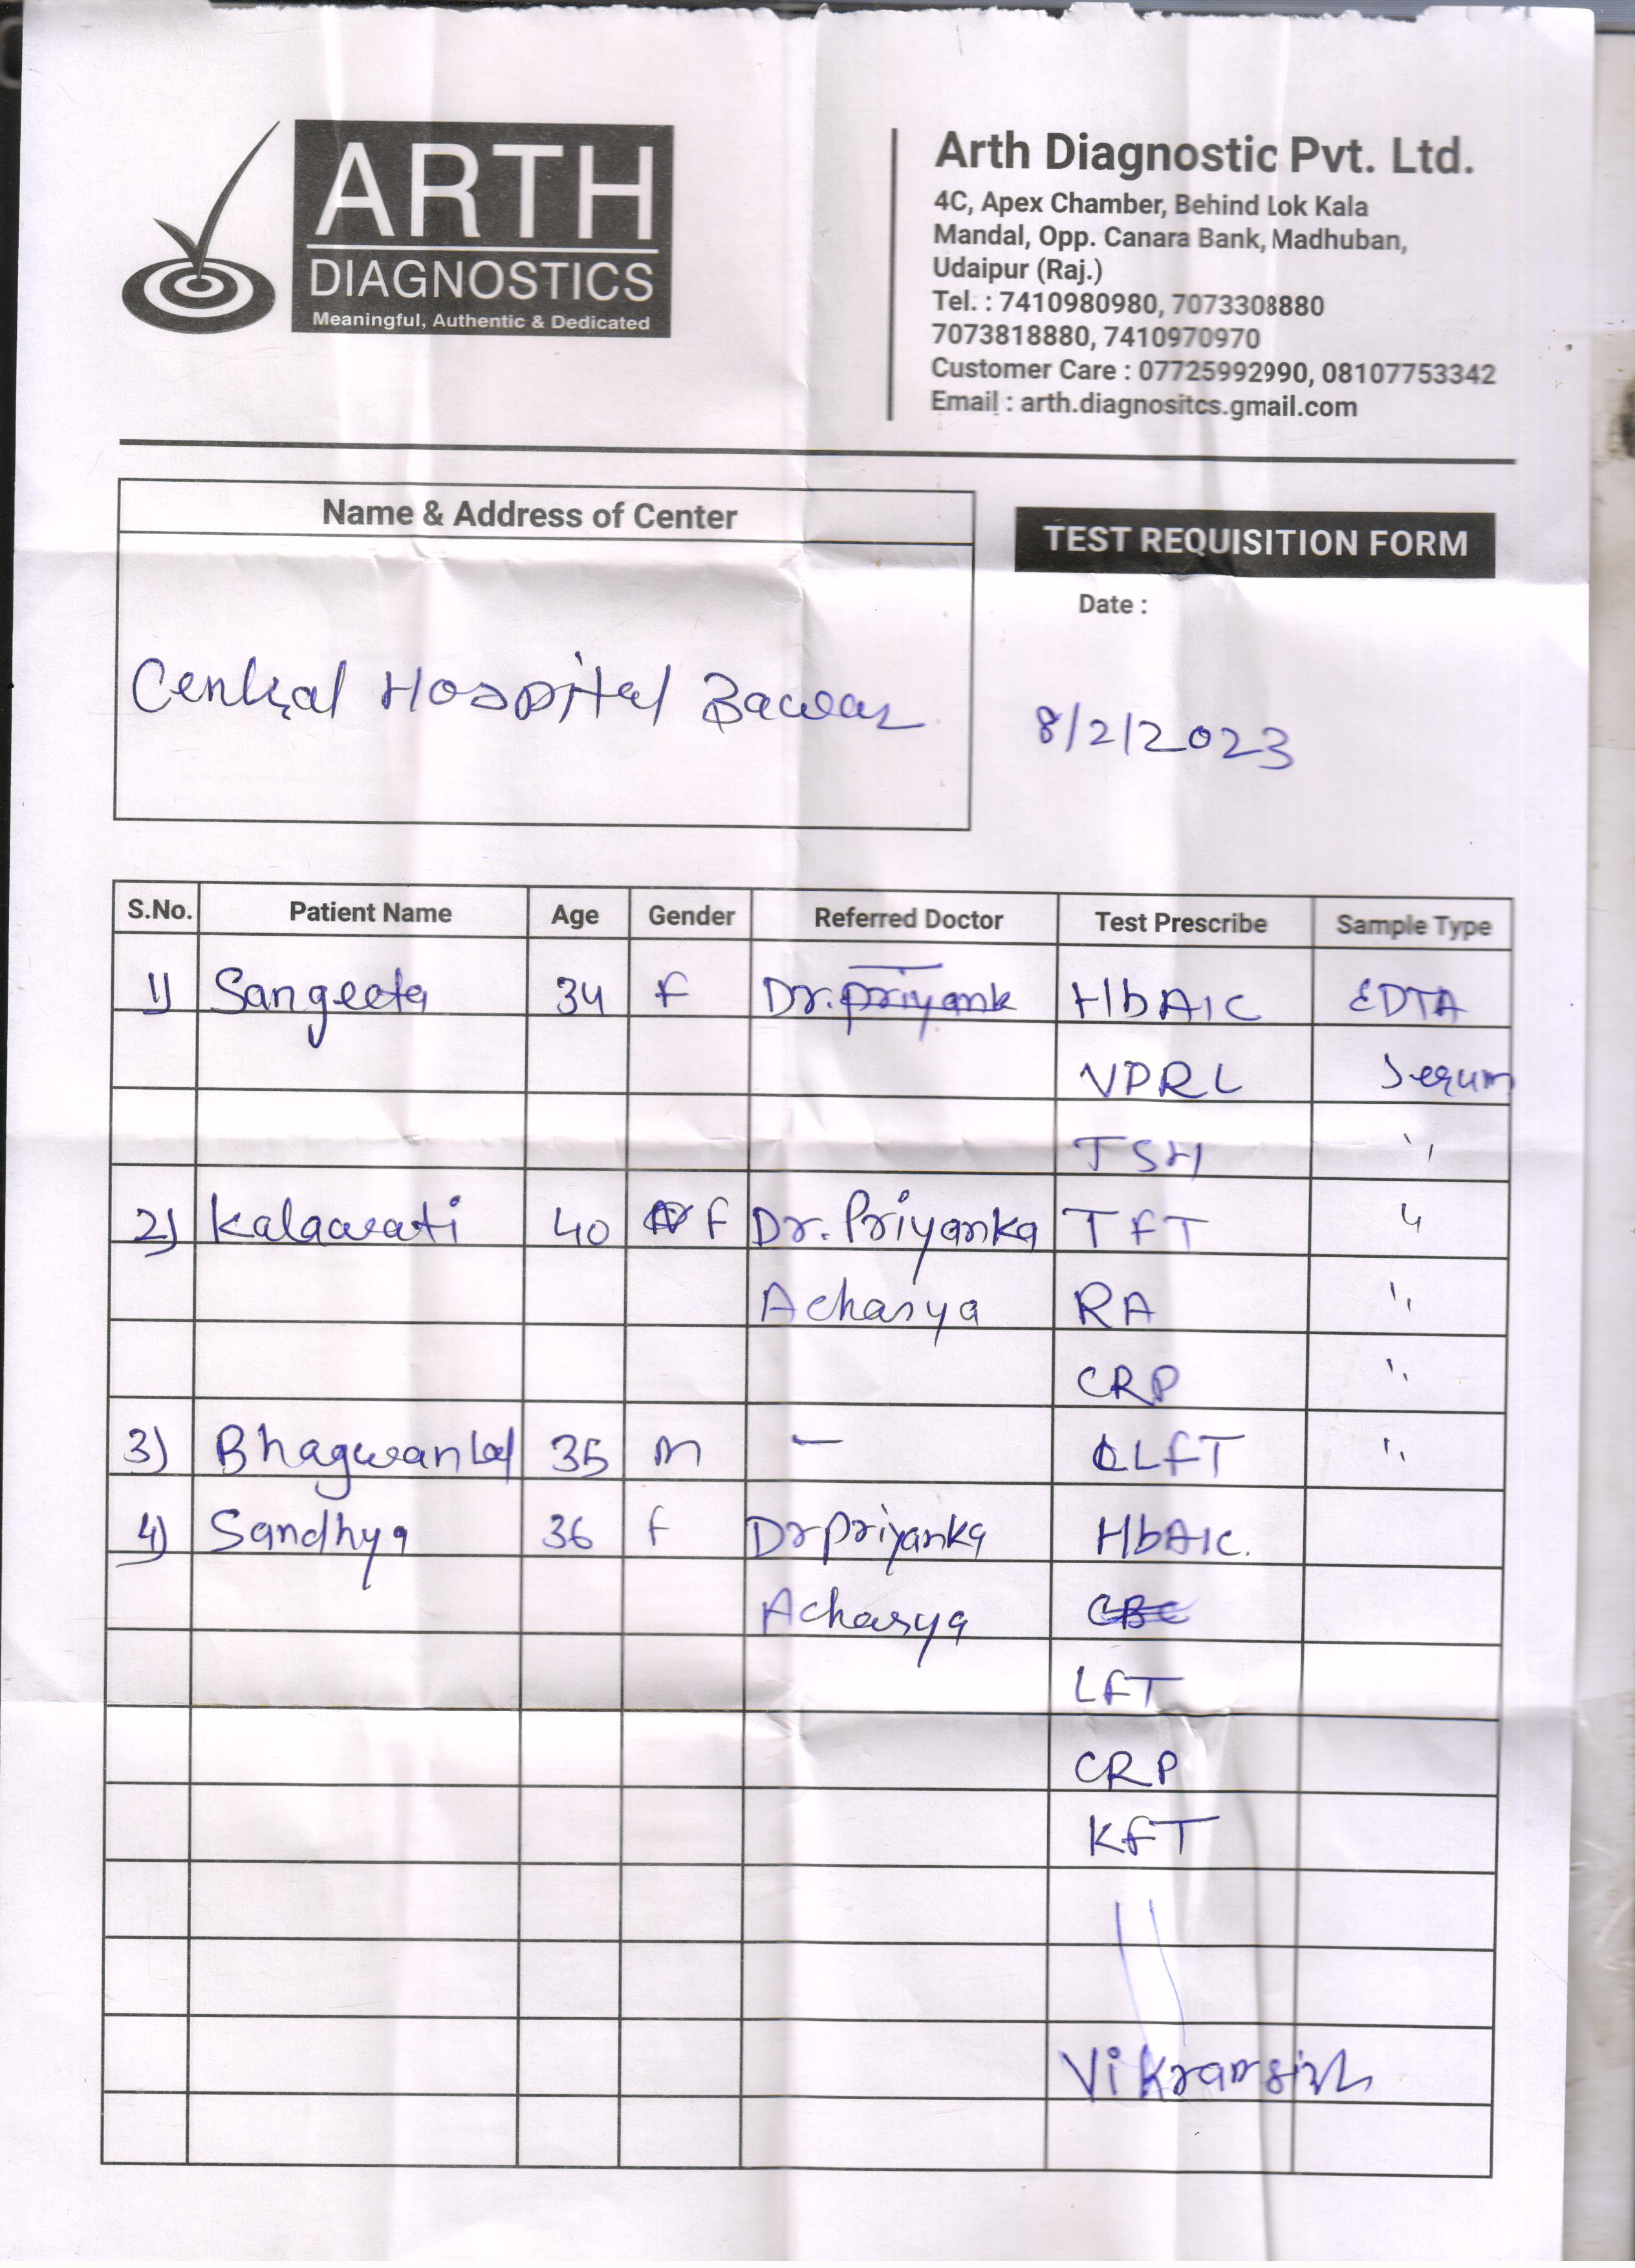 ARTH
DIAGNOSTICS
Meaningful, Authentic & Dedicated
Arth Diagnostic Pvt. Ltd.
4C, Apex Chamber, Behind Lok Kala
Mandal, Opp. Canara Bank, Madhuban,
Udaipur (Raj.)
Tel. : 7410980980, 7073308880
7073818880, 7410970970
Customer Care : 07725992990, 08107753342
Email : arth.diagnositcs.gmail.com
Name & Address of Center
TEST REQUISITION FORM
Date :
Central Hospital
8/2/2023
S.No. Patient Name Age Gender Referred Doctor Test Prescribe Sample Type
1) Sangeeta 34 F Dr. Priyank HbA1C EDTA
VDRL Serum
TSH "
2) Kalawati 40 F Dr. Priyanka TFT "
Acharya RA "
CRP "
3) Bhagwan Lal 35 M - LFT "
4) Sandhya 36 F Dr Priyanka HbA1c.
Acharya CBC
LFT
CRP
KFT